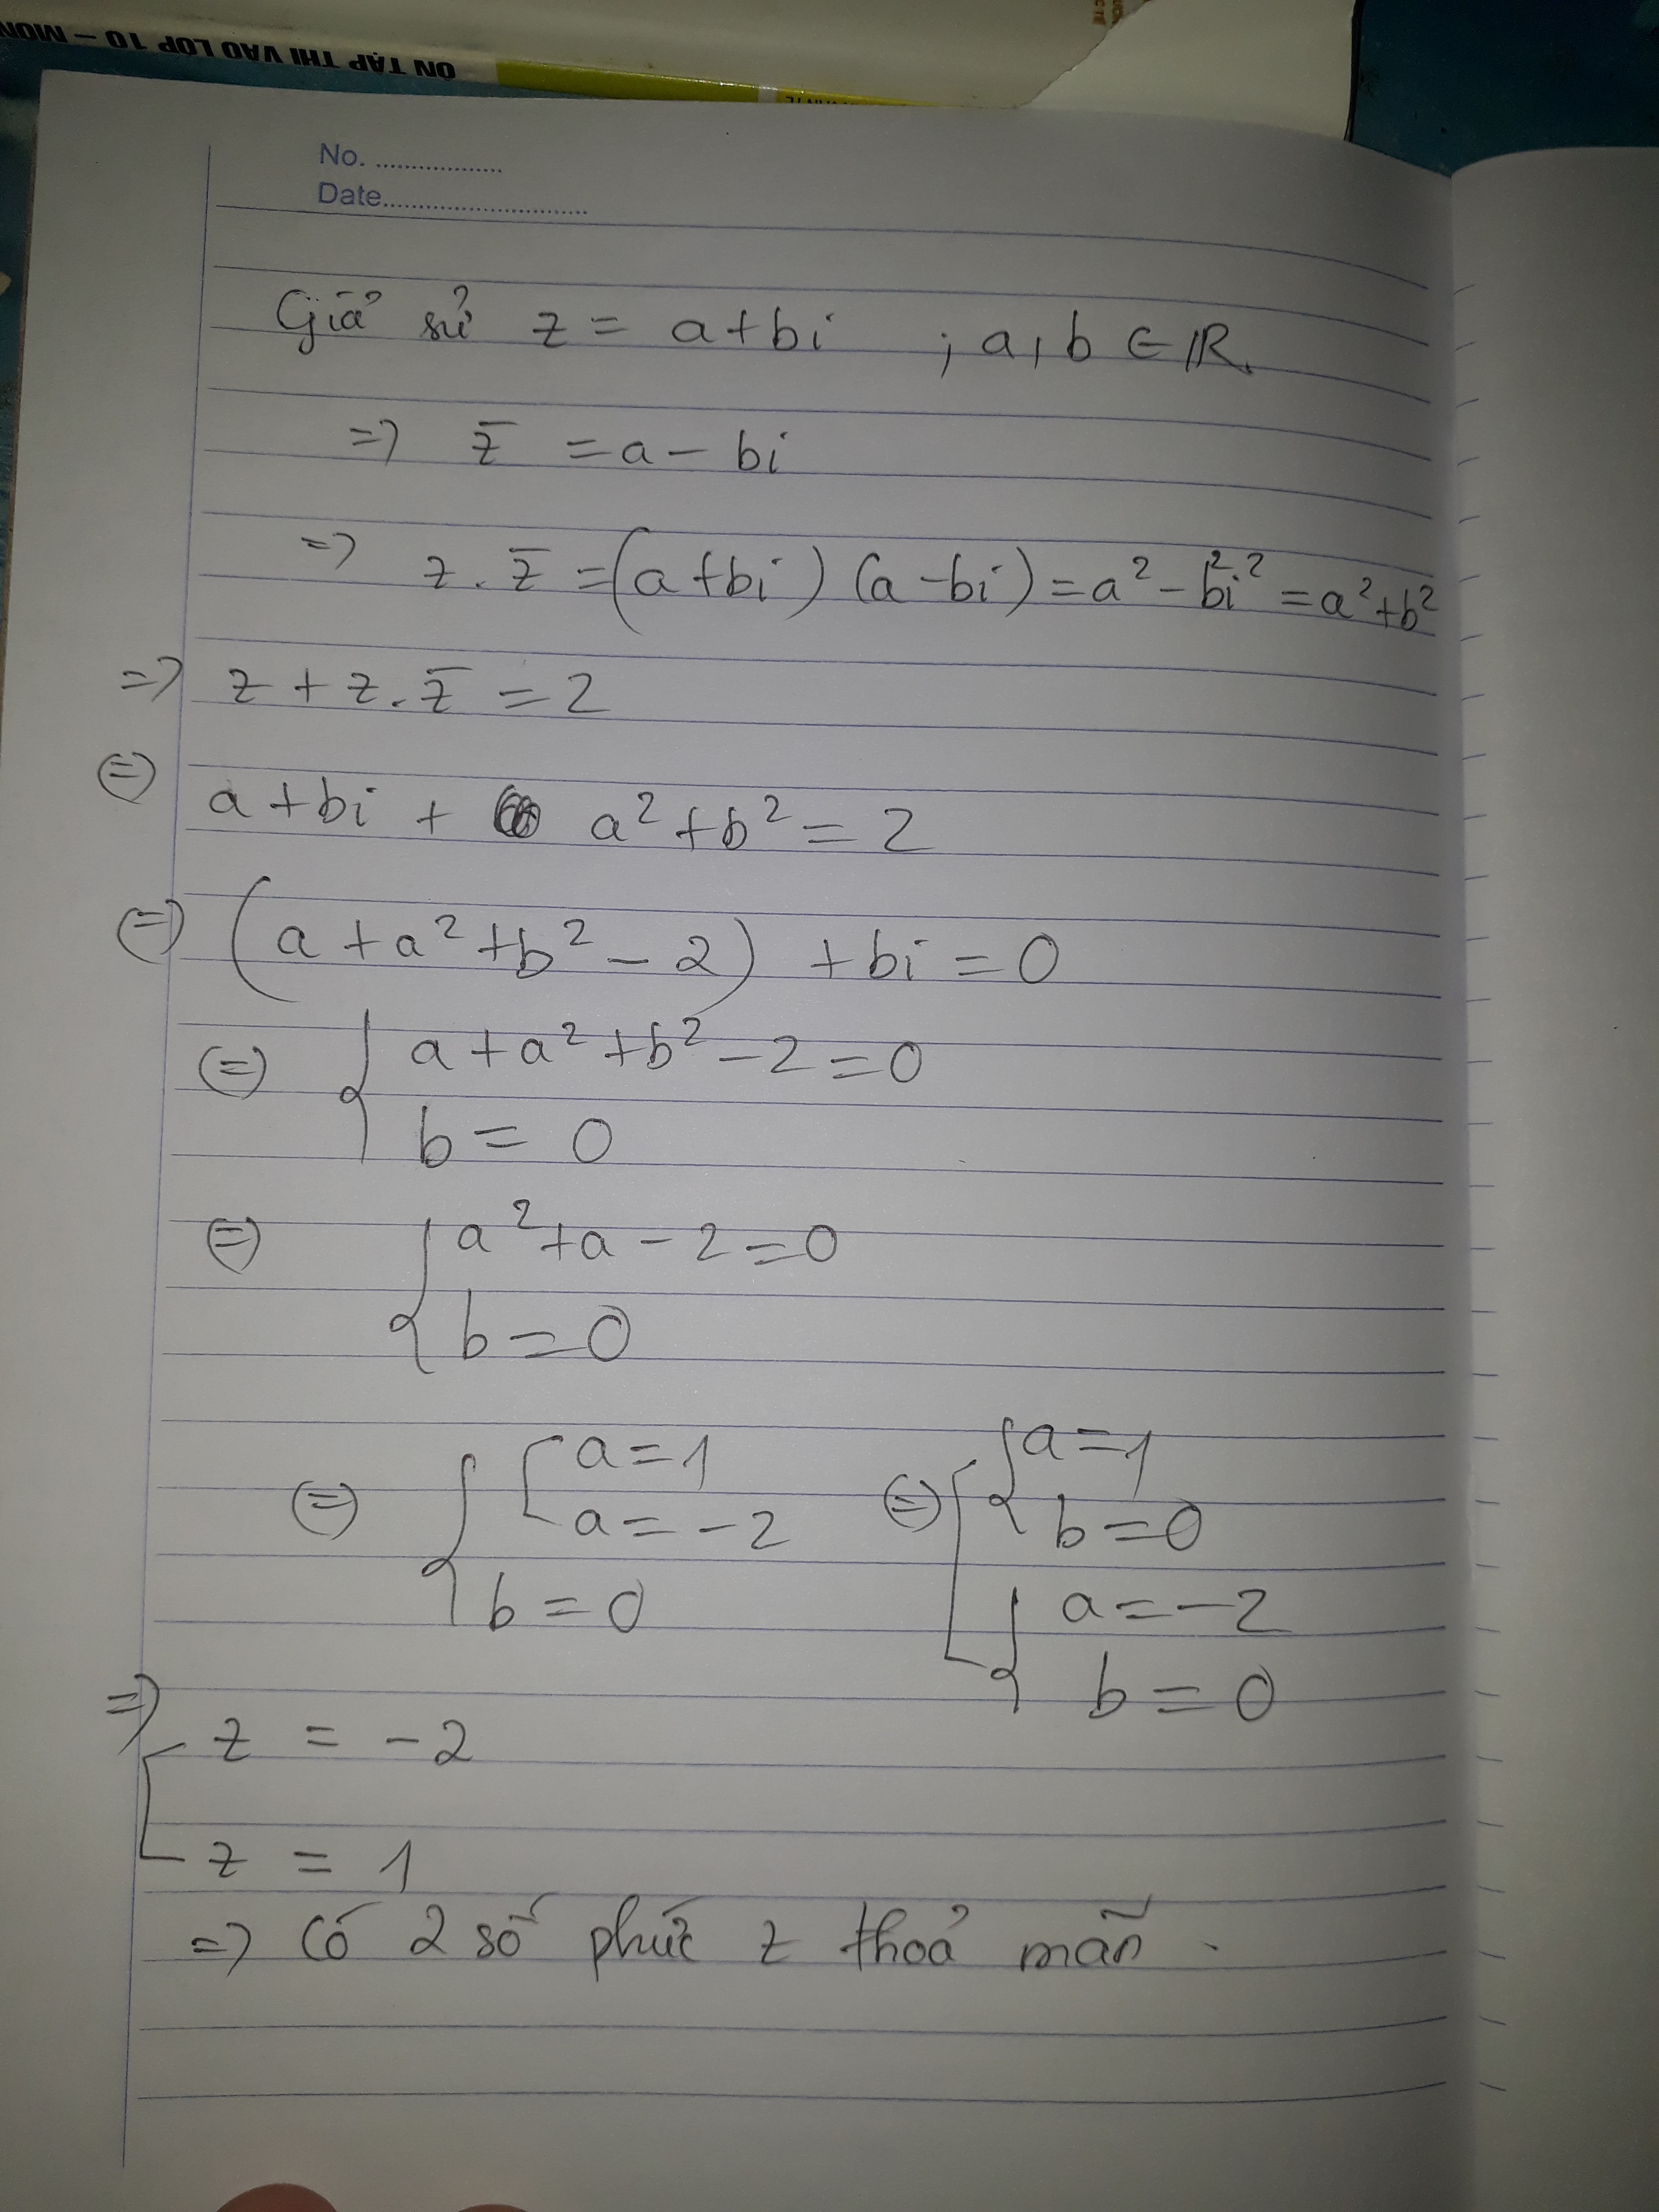 ÔN TẬP THI VÀO LỚP 10 – MÔN
No. ..................
Date.............................
Giả sử z = a + bi ; a, b ∈ ℝ.
=> z̄ = a - bi
=> z . z̄ = (a + bi) (a - bi) = a² - b²i² = a² + b²
=> z + z . z̄ = 2
(=) a + bi + a² + b² = 2
(=) (a + a² + b² - 2) + bi = 0
(=) { a + a² + b² - 2 = 0
b = 0
(=) { a² + a - 2 = 0
b = 0
(=) { [ a = 1
a = -2
b = 0
(=) [ { a = 1
b = 0
{ a = -2
b = 0
=> [ z = -2
z = 1
=> Có 2 số phức z thoả mãn .